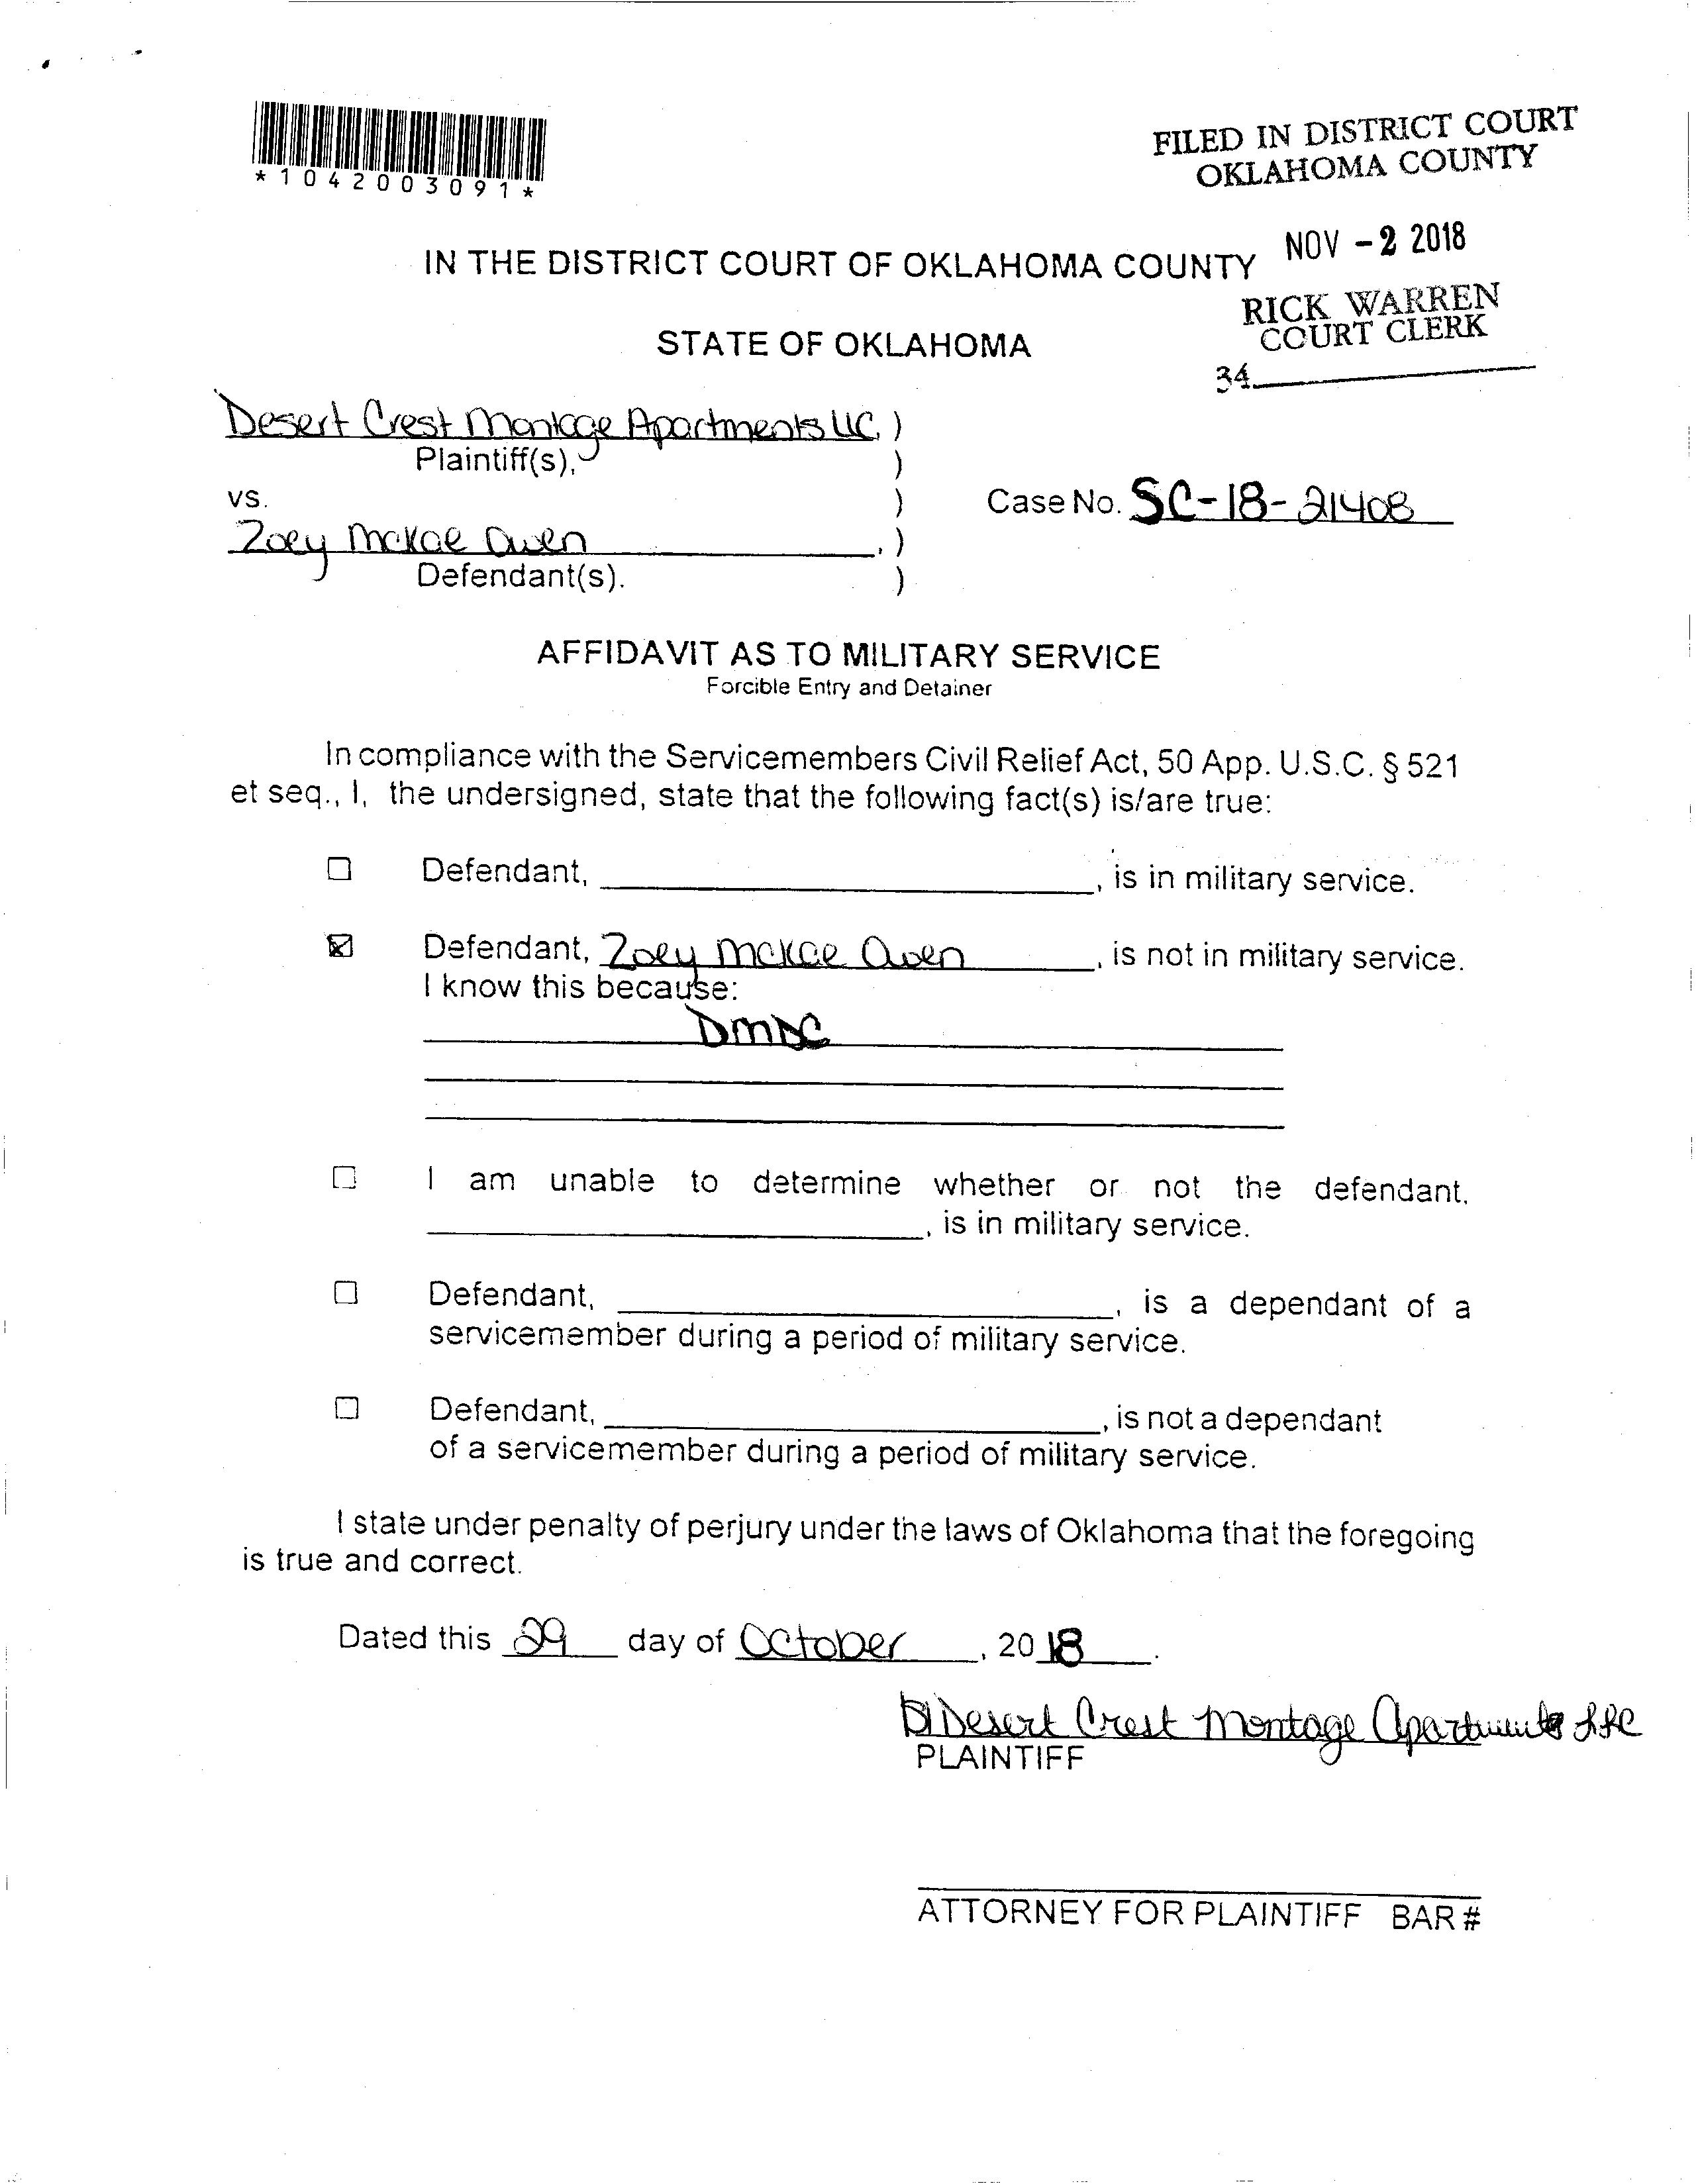 *1042003091*
FILED IN DISTRICT COURT
OKLAHOMA COUNTY
NOV - 2 2018
RICK WARREN
COURT CLERK
34
IN THE DISTRICT COURT OF OKLAHOMA COUNTY
STATE OF OKLAHOMA
Desert Crest Montage Apartments LLC, )
Plaintiff(s), )
vs. ) Case No. SC-18-21408
Zoey McKae Owen , )
Defendant(s). )
AFFIDAVIT AS TO MILITARY SERVICE
Forcible Entry and Detainer
In compliance with the Servicemembers Civil Relief Act, 50 App. U.S.C. § 521
et seq., I, the undersigned, state that the following fact(s) is/are true:
☐ Defendant, , is in military service.
☒ Defendant, Zoey McKae Owen , is not in military service.
I know this because:
DMDC
☐ I am unable to determine whether or not the defendant,
, is in military service.
☐ Defendant, , is a dependant of a
servicemember during a period of military service.
☐ Defendant, , is not a dependant
of a servicemember during a period of military service.
I state under penalty of perjury under the laws of Oklahoma that the foregoing
is true and correct.
Dated this 29 day of October , 20 18 .
Desert Crest Montage Apartments LLC
PLAINTIFF
ATTORNEY FOR PLAINTIFF BAR #